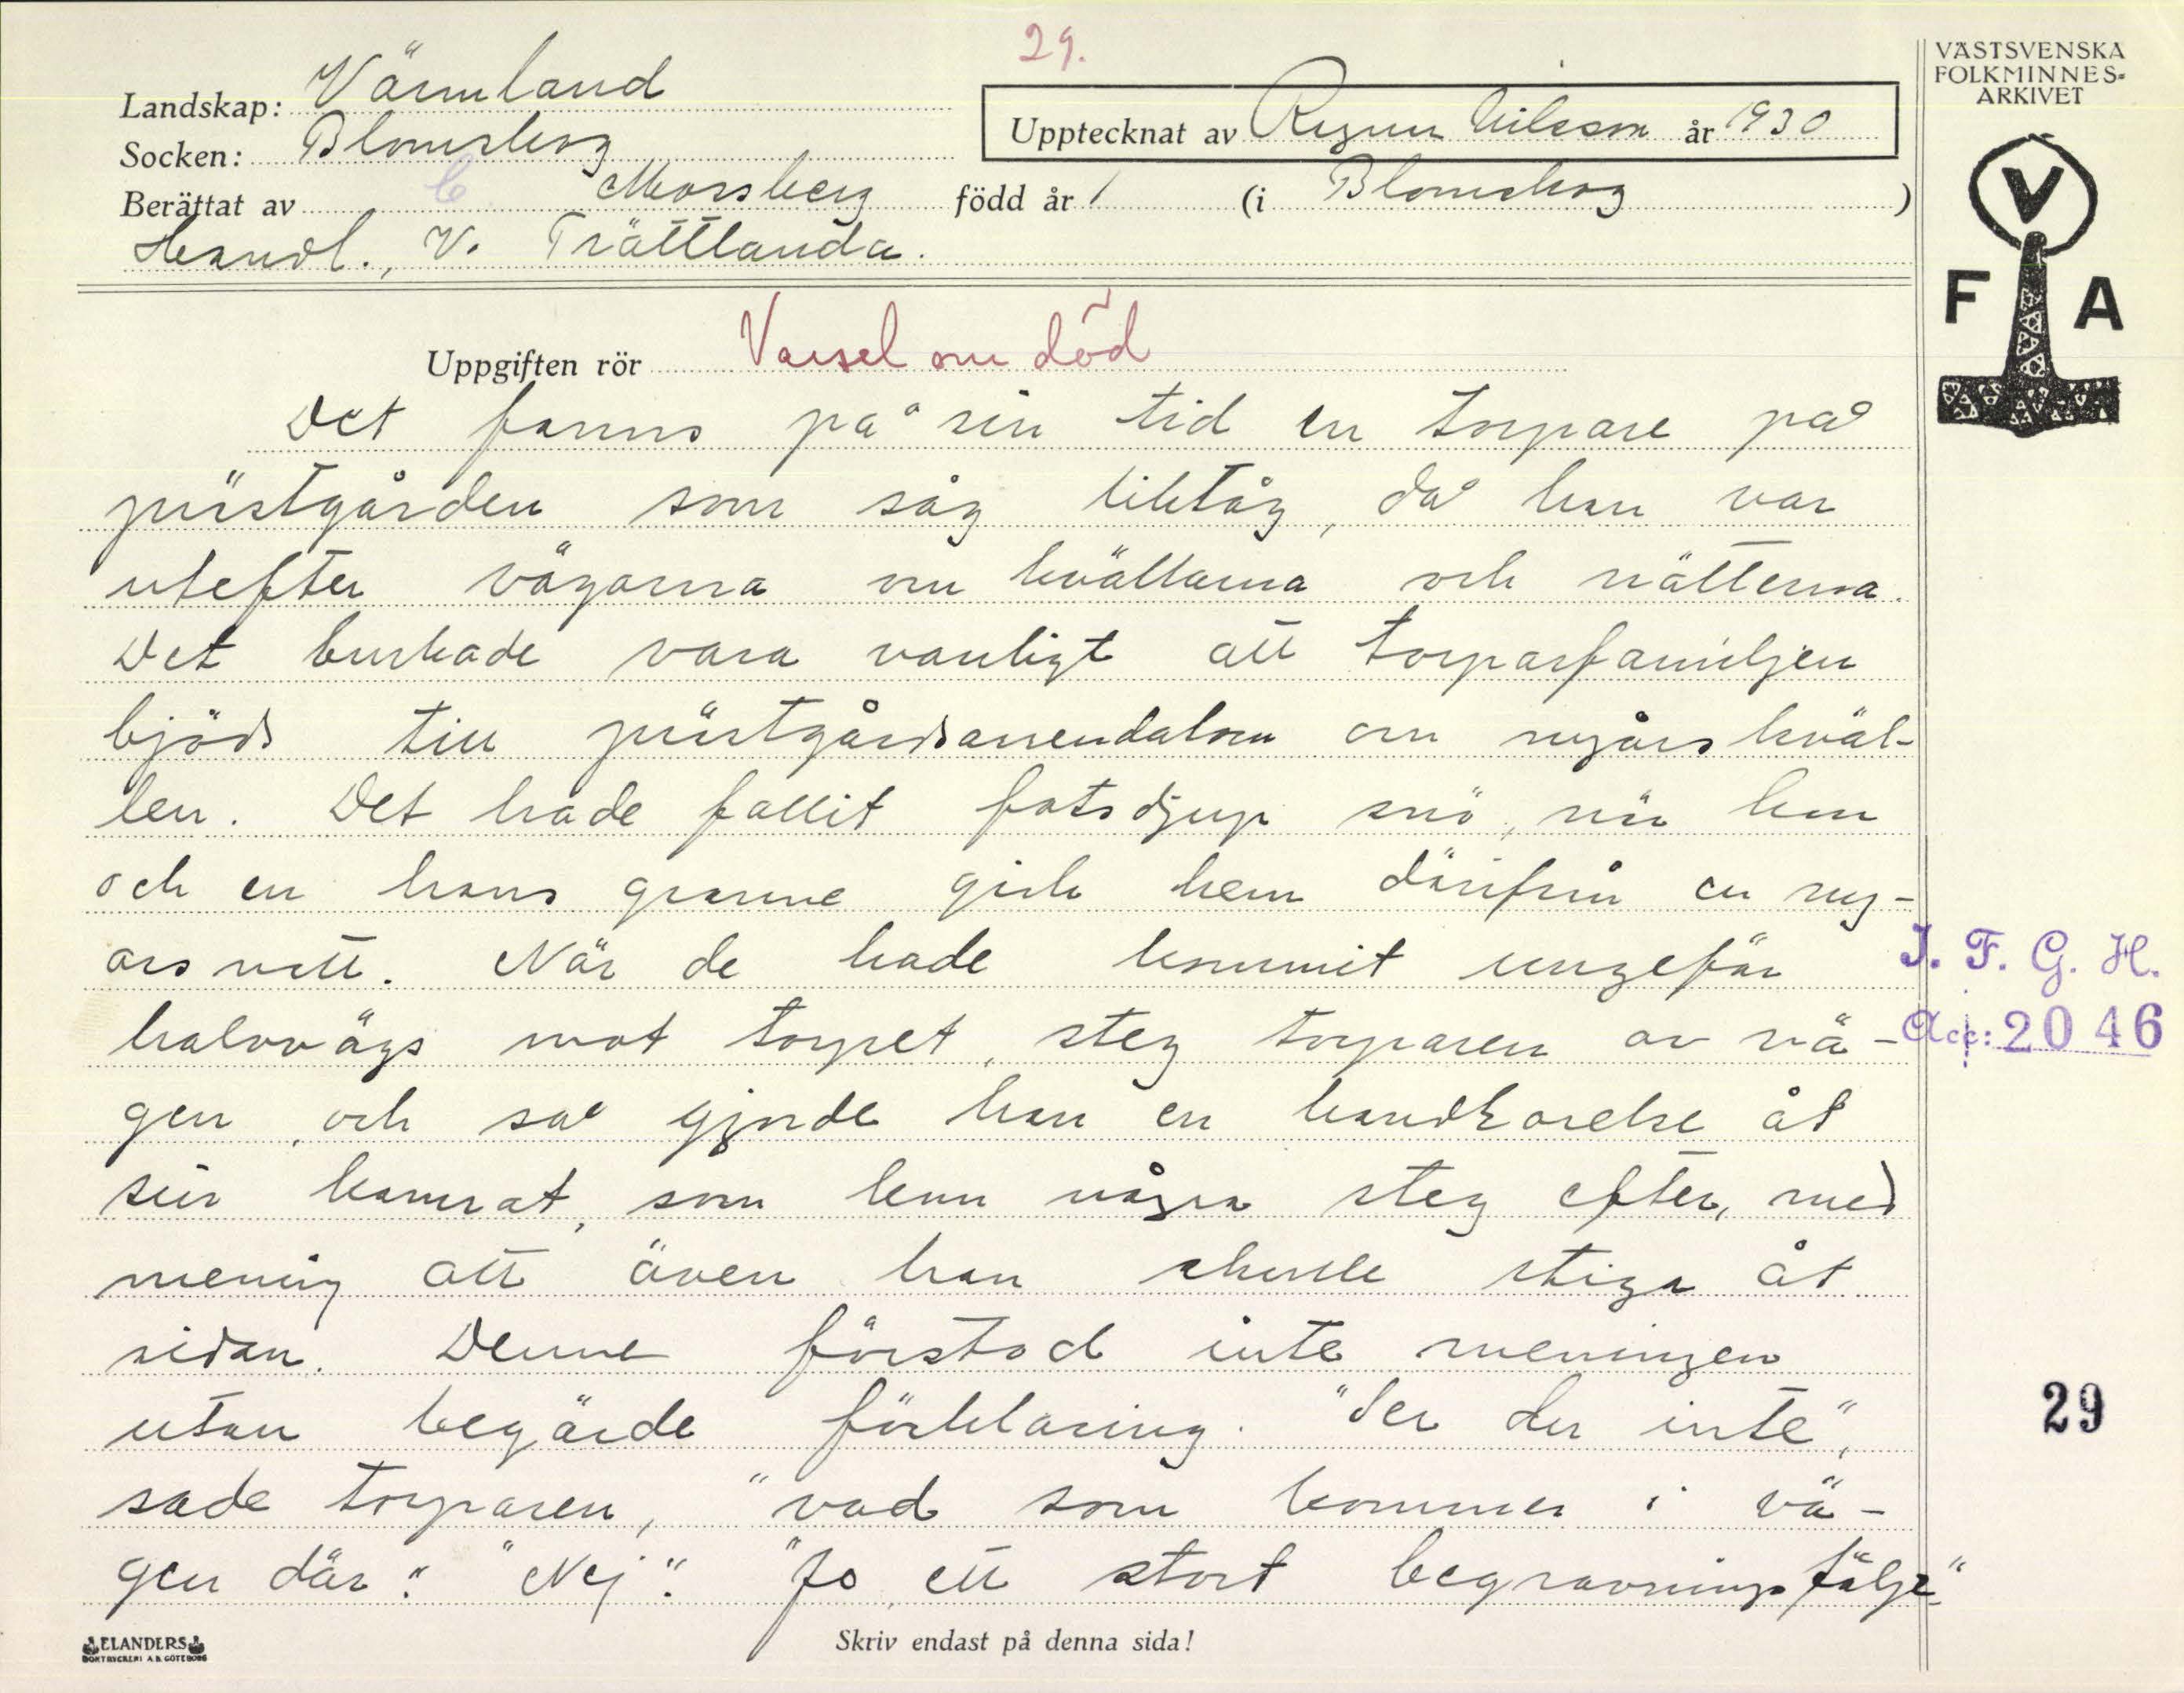 29.
VÄSTSVENSKA
FOLKMINNES-
ARKIVET
Landskap: Värmland
Upptecknat av Ragnar Nilsson år 1930
Socken: Blomskog
Berättat av C Mossberg född år 1 (i Blomskog )
Handl., V. Trättlanda.
V
F A
Uppgiften rör Varsel om död
Det fanns på sin tid en torpare på
prästgården som såg liktåg, då han var
utefter vägarna om kvällarna och nätterna.
Det brukade vara vanligt att torparfamiljen
bjöds till prästgårdsarrendatorn om nyårskväl-
len. Det hade fallit fotsdjup snö, när han
och en hans granne gick hem därifrån en ny-
årsnatt. När de hade kommit ungefär
halvvägs mot torpet, steg torparen av vä-
gen, och så gjorde han en handrörelse åt
sin kamrat, som kom några steg efter, med
mening att även han skulle stiga åt
sidan. Denne förstod inte meningen
utan begärde förklaring. "Ser du inte",
sade torparen, "vad som kommer i vä-
gen där". "Nej". "Jo, ett stort begravningsfölje"
I. F. G. H.
Acc: 2046
29
ELANDERS
BOKTRYCKERI A.B. GÖTEBORG
Skriv endast på denna sida!